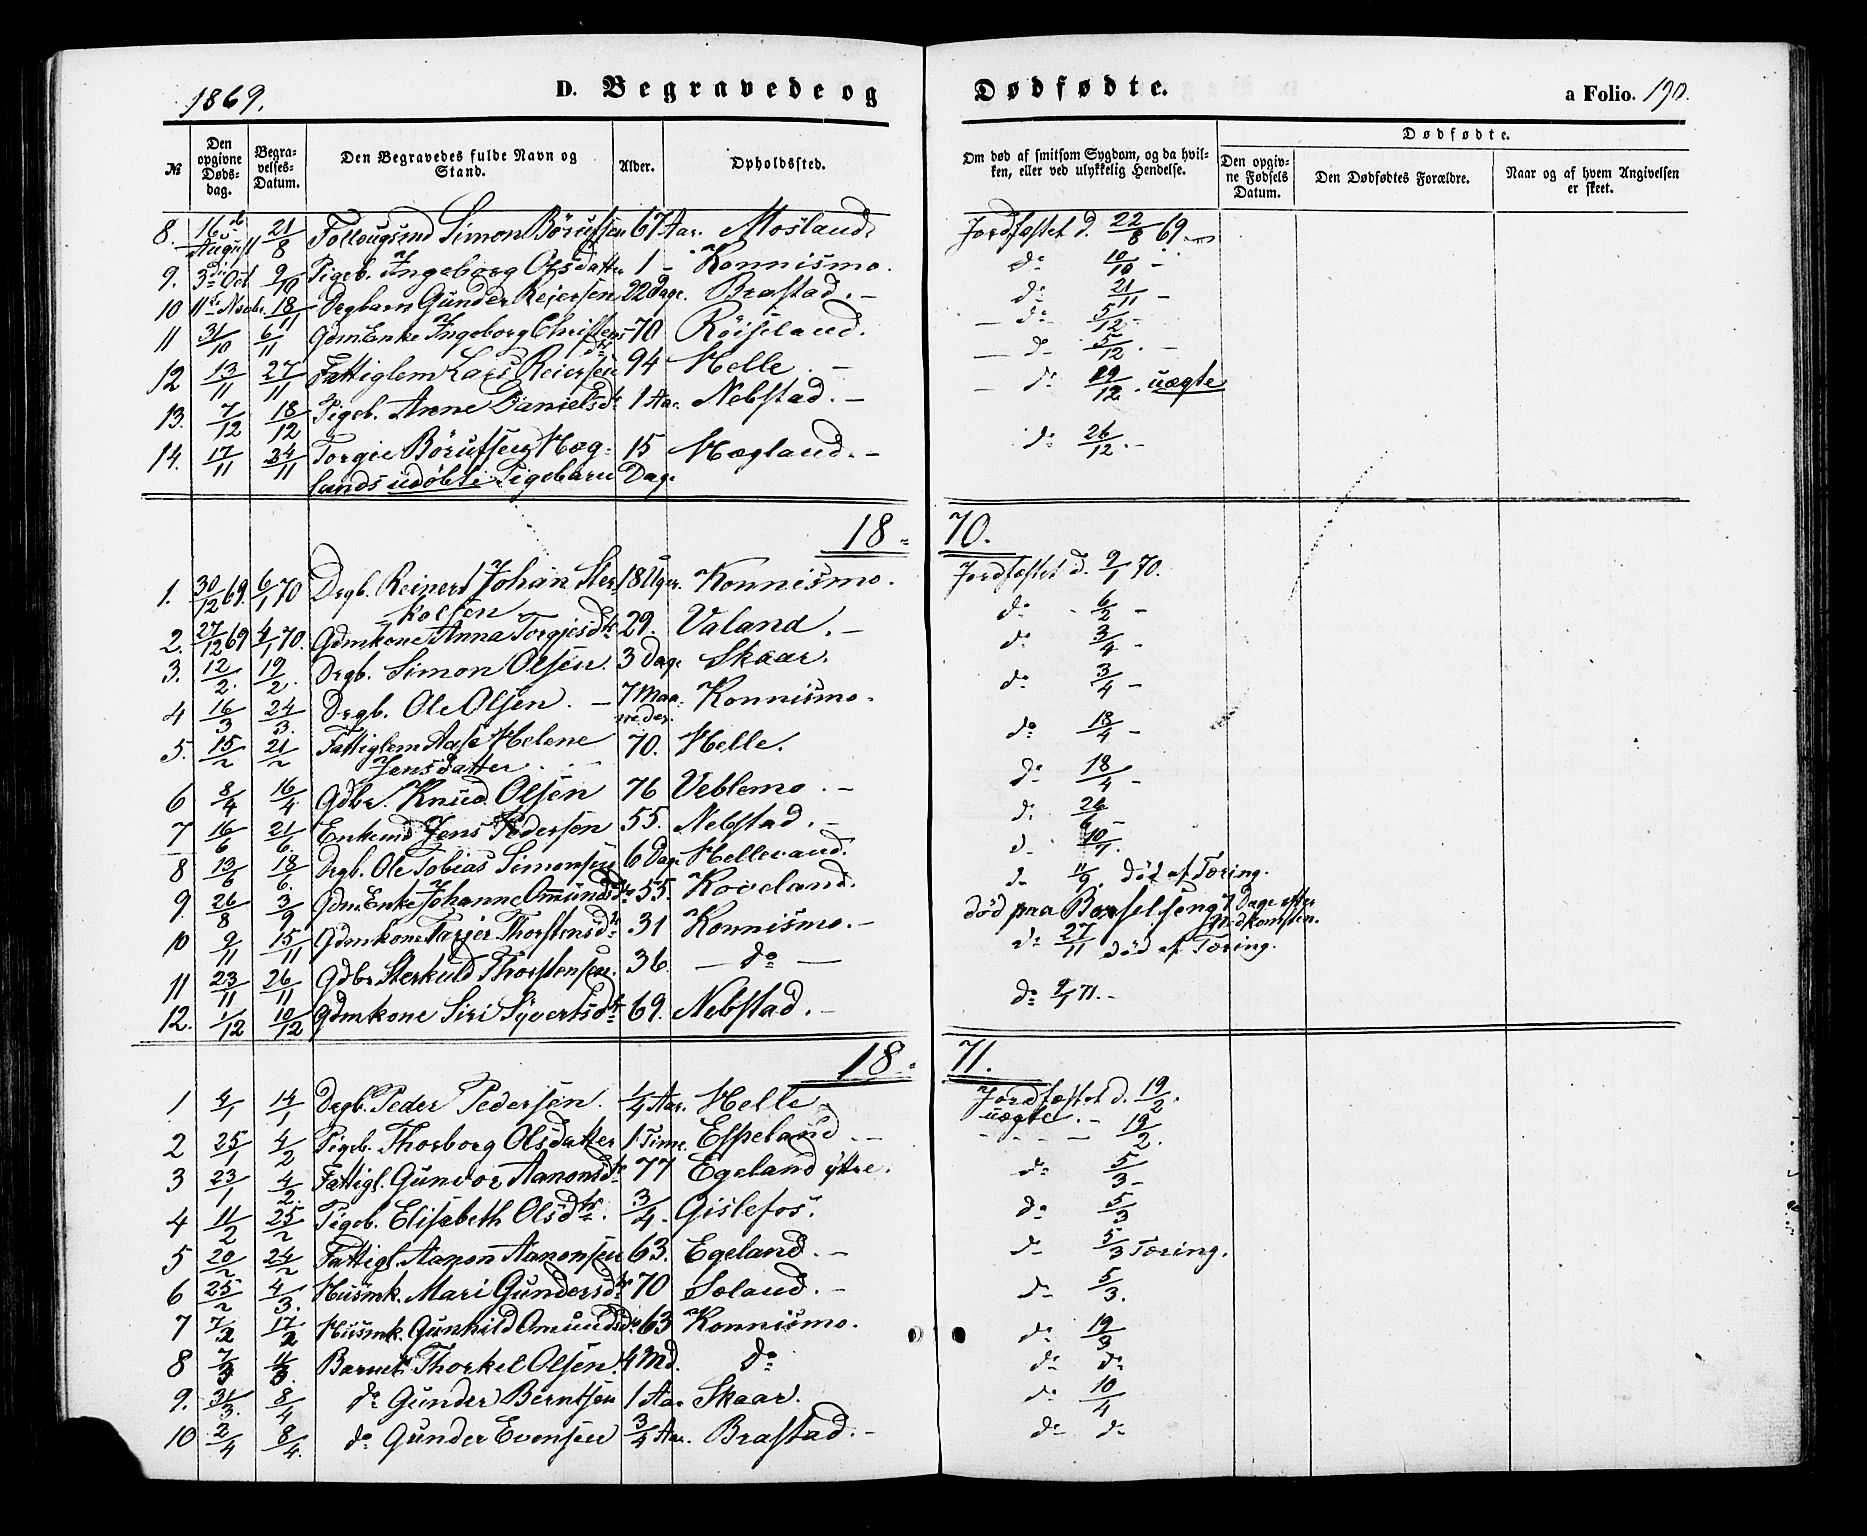 1869.
D. Begravede og Dødfødte.
a Folio. 190.
№
Den opgivne Døds-dag.
Begra-velses-Datum.
Den Begravedes fulde Navn og Stand.
Alder.
Opholdssted.
Om død af smitsom Sygdom, og da hvil-ken, eller ved ulykkelig Hendelse.
Dødfødte.
Den opgiv-ne Fødsels Datum.
Den Dødfødtes Forældre.
Naar og af hvem Angivelsen er skeet.
8. 16de August 21/8 Simon Börufsen 67 Aar. Mosland. Jordfæstet d. 22/8 69.
9. 3die Oct 9/10 Pigeb. Ingeborg Olsdatter 1 - Konnismo. do 10/10 -
10 11te Novbr. 18/11 Drgbarn Gunder Reiersen 22 Dage. Brastad. - do 21/11 -
11 31/10 6/11 Gdm. Enke Ingeborg Christens dtr 70 Röiseland. - do 5/12 -
12 13/11 27/11 Fattiglem Lars Reiersen 94 Helle. - do 5/12. -
13. 7/12 18/12 Pigeb. Anne Danielsdr 1 Aar. Nebstad. - do 29/12. uægte
14. 17/11 24/11 Torgie Börufsen Hæg- 15 Hægland. - do 26/12. -
lands udøbte Pigebarn Dage
18 - 70.
1. 30/12 69. 6/1 70 Drgb. Reinert Johan Ster- 18 Uger. Konnismo. Jordfæstet d. 9/1 70.
kolsen
2. 27/12 69 4/1 70. Gdmkone Anna Torgjesdtr 29. Valand. - do - 6/2 -
3. 12/2. 19/2. Drgb. Simon Olsen. 3 Dage Skaar. do 3/4 -
4 16/3 24/3. Drgb. Ole Olsen. - 7 Maa- Konnismo. do 3/4 -
neder.
5. 15/2 21/2 Fattiglem Aase Helene 70. Helle. do 18/4 -
Jensdatter.
6 8/4 16/4 Gdbr. Knud Olsen 76 Veblemo. - do 18/4 -
7 16/6 21/6. Enkemd Jens Pedersen 55. Nebstad. - do 26/6 -
8 13/6 18/6. Drgb. Ole Tobias Simonsen 6 Dage Hellevand. do 10/7.
9 26/8 3/9 Gdm. Enke Johanne Omundsdtr 55. Koveland. do 11/9. død af Tæring.
10 9/11 15/11 Gdmkone Tarjer Thorstensdtr 31 Konnismo. - død paa Barselseng 7 Dage efter Nedkomsten.
11 23/11 26/11 Gdbr Sterkuld Thorstensen. 36. - do - do 27/11 död af Tæring.
12. 1/12 10/12 Gdmkone Siri Syvertsdtr 69. Nebstad. - do 9/1 71. -
18 - 71.
1 4/1 14/1 Drgb. Peder Pedersen. 1/4 Aar. Helle. Jordfæstet d. 19/2.
2 25/1 4/2 Pigeb. Thorborg Olsdatter 1 Time Espeland. - uægte. - 19/2.
3 23/1 4/2. Fattigl. Gunvor Aanonsdtr 77 Egeland yttre. do 5/3 -
4 11/2 25/2 Pigeb. Elisabeth Olsdtr. 3/4. Gislefos. do 5/3
5 20/2 24/2 Fattigl. Aanon Aanonsen 63. Egeland. - do 5/3 Tæring.
6 25/2 4/3. Husmk. Mari Gundersdtr 70 Soland. - do 5/3.
7 7/2 17/2 Husmk. Gunhild Omundsdtr 63 Konnismo. do 19/3
8 7/3 11/3. Barnet Thorkel Olsen 4 Md. do do do
9. 31/3. 8/4 do Gunder Berntsen 1 Aar Skaar. do 10/4
10 2/4 8/4. do Gunder Evensen 3/4 Aar. Brastad. - do do